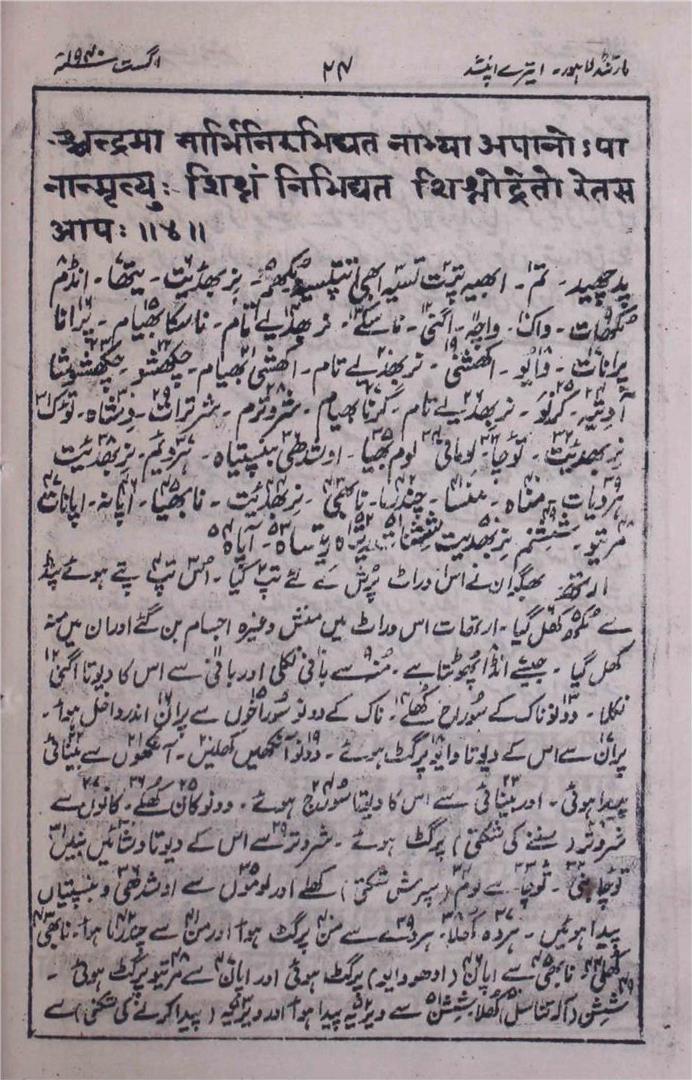 مارتنڈ لاہور۔ ایترے اپنشد ۲۴ اگست ۱۹۴۰ء
श्चन्द्रमा नाभिर्निरभिद्यत नाभ्या अपानोऽपा
नान्मृत्युः शिश्नं निभिद्यत शिश्नोद्रेतो रेतस
आपः ॥४॥
پدچھید۔ تم۔ ابھیہ تپت تسیہ ابھی تپتسیہ مکھم۔ نربھدیت۔ یتھا۔ انڈم
مکھات۔ واک۔ واچہ۔ اگنی۔ ناسکے۔ نربھدیے تام۔ ناسکا بھیام۔ پرانا
پرانات۔ وایو۔ اکھشنی۔ نربھدیے تام۔ اکھشی بھیام۔ چکھشو۔ چکھشوشا
آدتیہ۔ کرنو۔ نربھدیے تام۔ کرنا بھیام۔ شروترم۔ شرترات۔ دشاہ۔ توک
نربھدیت۔ توچا۔ لومانی۔ لوم بھیا۔ اوشدھی بنسپتیاہ۔ ہردیم۔ نربھدیت
ہردیات۔ مناہ۔ منسا۔ چندرما۔ نابھی۔ نربھدیت۔ نابھیا۔ اپانہ۔ اپانات
مرتیو۔ ششنم نربھدیت ششنا ریتاہ ریتساہ۔ آپاہ
ارتھ بھگوان نے اس وراٹ پرش کے لئے تپ کیا۔ اس تپ تپے ہوئے پنڈ
سے مکھ کھل گیا۔ ارتھات اس وراٹ میں منش وغیرہ اجسام بن گئے اور ان میں منہ
کھل گیا۔ جیسے انڈا پھوٹتا ہے۔ منہ سے بانی نکلی اور بانی سے اس کا دیوتا اگنی
نکلا۔ دونو ناک کے سوراخ کھلے۔ ناک کے دونو سوراخوں سے پران اندر داخل ہوا۔
پران سے اس کے دیوتا وایو پرگٹ ہوئے۔ دونو آنکھیں کھلیں۔ آنکھوں سے بینائی
پیدا ہوئی۔ اور بینائی سے اس کا دیوتا سورج ہوئے۔ دونو کان کھلے۔ کانوں سے
شروتر (سننے کی شکتی) پرگٹ ہوئے۔ شروتر سے اس کے دیوتا دشائیں بنیں
توچا بنی۔ توچا سے لوم (سپرش شکتی) کھلے اور لوموں سے اوشدھی و بنسپتیاں
پیدا ہوئیں۔ ہردہ کھلا۔ ہردے سے من پرگٹ ہوا اور من سے چندرما ہوا۔ نابھی
کھلی۔ نابھی سے اپان (ادھو وایو) پرگٹ ہوئی اور اپان سے مرتیو پرگٹ ہوئی۔
ششن (آلہ تناسل) کھلا ششن سے ویریہ پیدا ہوا اور ویریہ (پیدا کرنے کی شکتی) سے